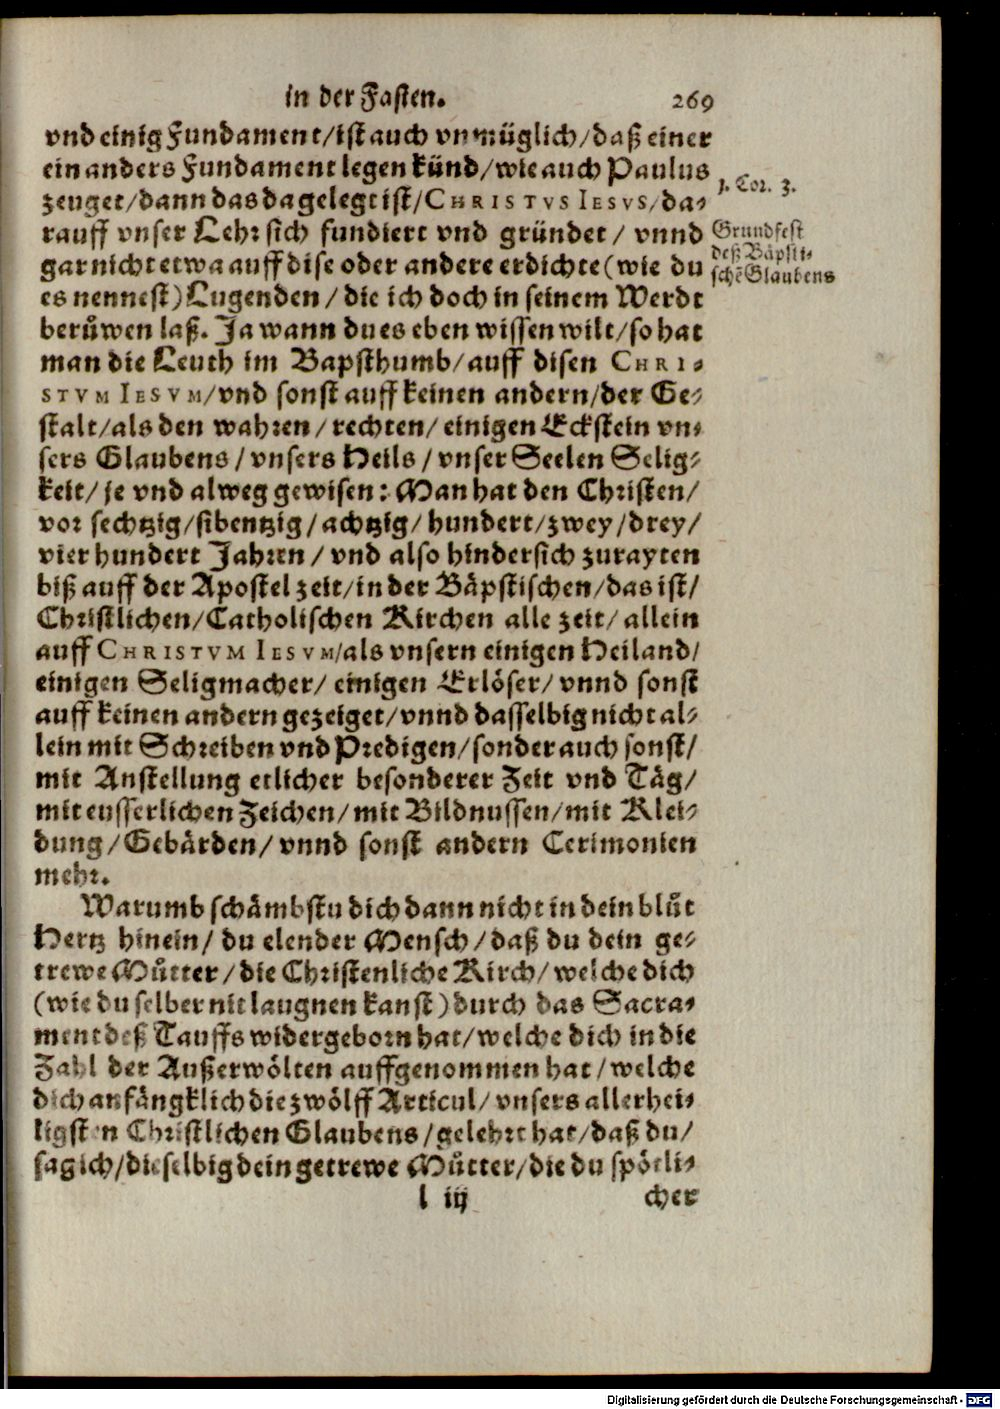 in der Fasten. 269
vnd einig Fundament/ist auch vnmüglich/daß einer
ein anders Fundament legen künd/wie auch Paulus
1. Cor. 3.
zeuget/dann das da gelegt ist/CHRISTVS IESVS/da-
rauff vnser Lehr sich fundiert vnd gründet/ vnnd
Grundfest
deß Bäpsti-
schẽ Glaubens
gar nicht etwa auff dise oder andere erdichte (wie du
es nennest) Lugenden/ die ich doch in seinem Werdt
berůwen laß. Ja wann du es eben wissen wilt/so hat
man die Leuth im Bapsthumb/auff disen CHRI-
STVM IESVM/vnd sonst auff keinen andern/der Ge-
stalt/als den wahren/ rechten/ einigen Eckstein vn-
sers Glaubens/ vnsers Heils/ vnser Seelen Selig-
keit/ je vnd alweg gewisen: Man hat den Christen/
vor sechtzig/sibentzig/achtzig/hundert/zwey/drey/
vier hundert Jahren/ vnd also hindersich zurayten
biß auff der Apostel zeit/in der Bäpstischen/das ist/
Christlichen/Catholischen Kirchen alle zeit/ allein
auff CHRISTVM IESVM/als vnsern einigen Heiland/
einigen Seligmacher/ einigen Erlöser/ vnnd sonst
auff keinen andern gezeiget/vnnd dasselbig nicht al-
lein mit Schreiben vnd Predigen/sonder auch sonst/
mit Anstellung etlicher besonderer Zeit vnd Täg/
mit eusserlichen Zeichen/mit Bildnussen/mit Klei-
dung/Gebärden/ vnnd sonst andern Cerimonien
mehr.
Warumb schämbstu dich dann nicht in dein blůt
Hertz hinein/ du elender Mensch/daß du dein ge-
trewe Můtter/die Christenliche Kirch/welche dich
(wie du selber nit laugnen kanst) durch das Sacra-
ment deß Tauffs widergeborn hat/welche dich in die
Zahl der Außerwölten auffgenommen hat/welche
dich anfängklich die zwölff Articul/ vnsers allerhei-
ligsten Christlichen Glaubens/gelehrt hat/daß du/
sag ich/dieselbig dein getrewe Můtter/die du spötli-
l iij cher
Digitalisierung gefördert durch die Deutsche Forschungsgemeinschaft - DFG